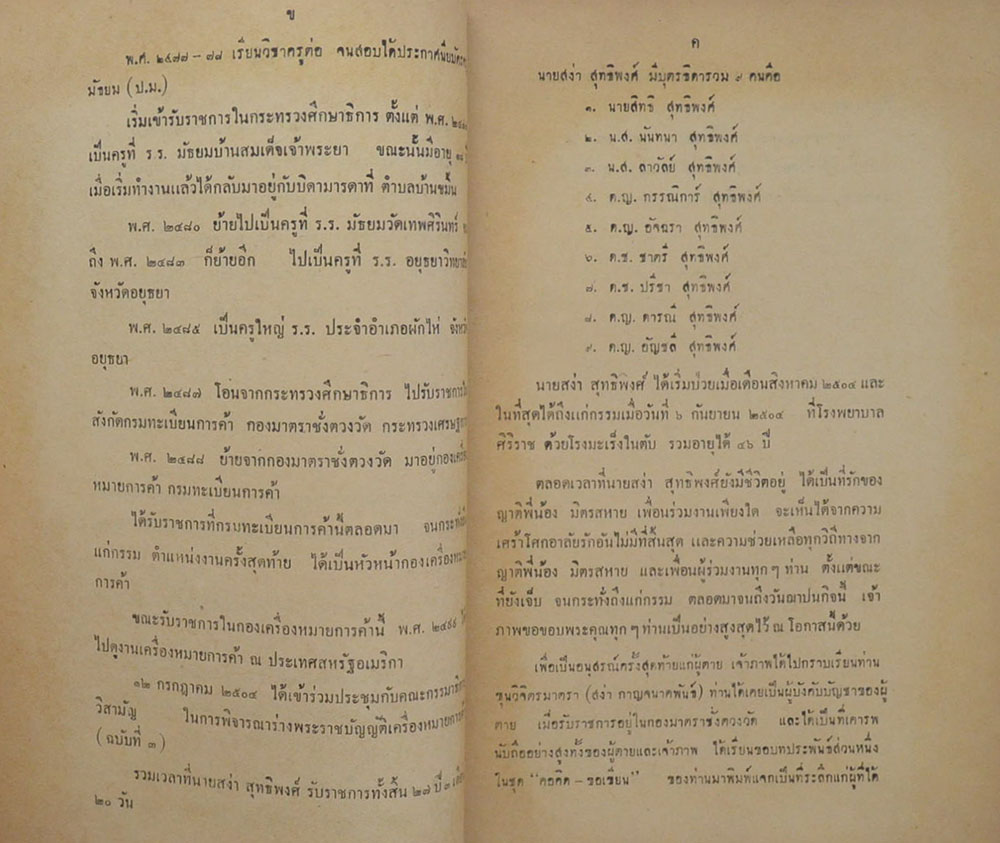 ข
พ.ศ. ๒๔๗๗ – ๗๘ เรียนวิชาครูต่อ จนสอบได้ประกาศนียบัตร
มัธยม (ป.ม.)
เริ่มเข้ารับราชการในกระทรวงศึกษาธิการ ตั้งแต่ พ.ศ.
เป็นครูที่ ร.ร. มัธยมบ้านสมเด็จเจ้าพระยา ขณะนั้นมีอายุ
เมื่อเริ่มทำงานแล้วได้กลับมาอยู่กับบิดามารดาที่ ตำบลบ้านขมิ้น
พ.ศ. ๒๔๘๐ ย้ายไปเป็นครูที่ ร.ร. มัธยมวัดเทพศิรินทร์
ถึง พ.ศ. ๒๔๘๓ ก็ย้ายอีก ไปเป็นครูที่ ร.ร. อยุธยาวิทยา
จังหวัดอยุธยา
พ.ศ. ๒๔๘๕ เป็นครูใหญ่ ร.ร. ประจำอำเภอผักไห่ จังห
อยุธยา
พ.ศ. ๒๔๘๗ โอนจากกระทรวงศึกษาธิการ ไปรับราชการ
สังกัดกรมทะเบียนการค้า กองมาตราชั่งตวงวัด กระทรวงเศรษฐ
พ.ศ. ๒๔๘๘ ย้ายจากกองมาตราชั่งตวงวัด มาอยู่กองเครื่อ
หมายการค้า กรมทะเบียนการค้า
ได้รับราชการที่กรมทะเบียนการค้านี้ตลอดมา จนกระทั่ง
แก่กรรม ตำแหน่งงานครั้งสุดท้าย ได้เป็นหัวหน้ากองเครื่องหมาย
การค้า
ขณะรับราชการในกองเครื่องหมายการค้านี้ พ.ศ. ๒๔๙๙
ไปดูงานเครื่องหมายการค้า ณ ประเทศสหรัฐอเมริกา
๑๒ กรกฎาคม ๒๕๐๔ ได้เข้าร่วมประชุมกับคณะกรรมาธิก
วิสามัญ ในการพิจารณาร่างพระราชบัญญัติเครื่องหมายการค้า
( ฉบับที่ ๓ )
รวมเวลาที่นายสง่า สุทธิพงศ์ รับราชการทั้งสิ้น ๒๗ ปี ๓ เดือ
๒๐ วัน
ค
นายสง่า สุทธิพงศ์ มีบุตรธิดารวม ๙ คนคือ
๑. นายสิทธิ สุทธิพงศ์
๒. น.ส. นันทนา สุทธิพงศ์
๓. น.ส. ลาวัลย์ สุทธิพงศ์
๔. ด.ญ. กรรณิการ์ สุทธิพงศ์
๕. ด.ญ. อัจฉรา สุทธิพงศ์
๖. ด.ช. ชาตรี สุทธิพงศ์
๗. ด.ช. ปรีชา สุทธิพงศ์
๘. ด.ญ. ดารณี สุทธิพงศ์
๙. ด.ญ. อัญชลี สุทธิพงศ์
นายสง่า สุทธิพงศ์ ได้เริ่มป่วยเมื่อเดือนสิงหาคม ๒๕๐๔ และ
ในที่สุดได้ถึงแก่กรรมเมื่อวันที่ ๖ กันยายน ๒๕๐๔ ที่โรงพยาบาล
ศิริราช ด้วยโรงมะเร็งในตับ รวมอายุได้ ๔๖ ปี
ตลอดเวลาที่นายสง่า สุทธิพงศ์ยังมีชีวิตอยู่ ได้เป็นที่รักของ
ญาติพี่น้อง มิตรสหาย เพื่อนร่วมงานเพียงใด จะเห็นได้จากความ
เศร้าโศกอาลัยรักอันไม่มีที่สิ้นสุด และความช่วยเหลือทุกวิถีทางจาก
ญาติพี่น้อง มิตรสหาย และเพื่อนผู้ร่วมงานทุก ๆ ท่าน ตั้งแต่ขณะ
ที่ยังเจ็บ จนกระทั่งถึงแก่กรรม ตลอดมาจนถึงวันฌาปนกิจนี้ เจ้า
ภาพขอขอบพระคุณทุก ๆ ท่านเป็นอย่างสูงสุดไว้ ณ โอกาสนี้ด้วย
เพื่อเป็นอนุสรณ์ครั้งสุดท้ายแก่ผู้ตาย เจ้าภาพได้ไปกราบเรียนท่าน
ขุนวิจิตรมาตรา (สง่า กาญจนาคพันธุ์) ท่านได้เคยเป็นผู้บังคับบัญชาของผู้
ตาย เมื่อรับราชการอยู่ในกองมาตราชั่งตวงวัด และได้เป็นที่เคารพ
นับถืออย่างสูงทั้งของผู้ตายและเจ้าภาพ ได้เรียนขอบทประพันธ์ส่วนหนึ่ง
ในชุด “คอคิด – ขอเขียน” ของท่านมาพิมพ์แจกเป็นที่ระลึกแก่ผู้ที่ได้